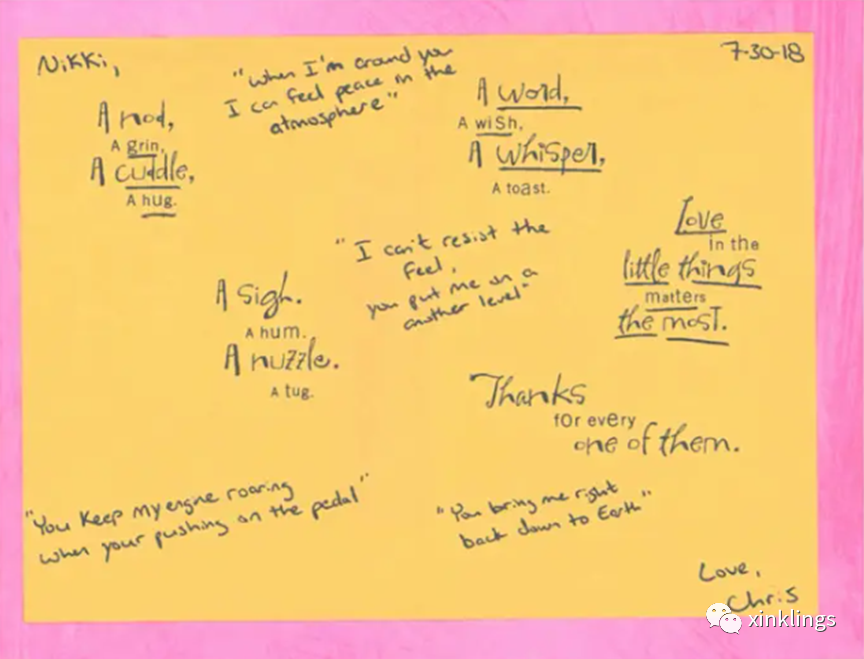 Nikki,
7-30-18
"When I'm around you
I can feel peace in the
atmosphere"
A nod,
A grin,
A cuddle,
A hug.
A word,
A wish,
A whisper,
A toast.
"I can't resist the
feel,
you put me on a
another level"
A sigh.
A hum.
A nuzzle.
A tug.
Love
in the
little things
matters
the most.
Thanks
for every
one of them.
"You Keep My engine roaring
when your pushing on the pedal"
"You bring me right
back down to Earth"
Love,
Chris
xinklings